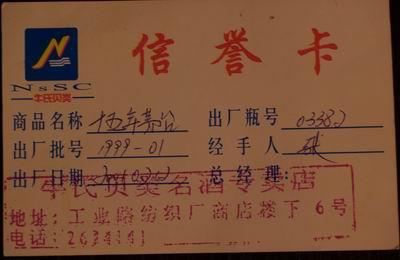 信誉卡
NSSC
牛氏贝奖
商品名称 十五年茅台 出厂瓶号 03382
出厂批号 1999-01 经手人 张
出厂日期 总经理:
名酒专卖店
地址:工业路纺织厂商店楼下6号
电话:2634141